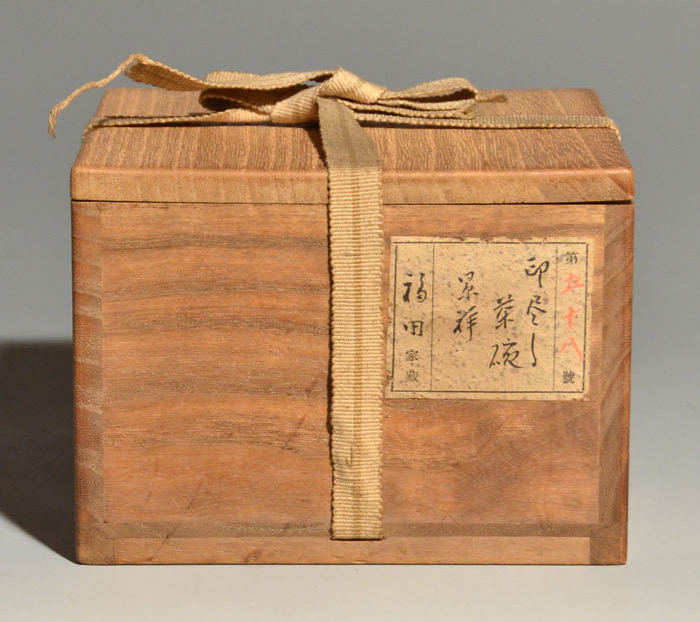 第五十八號
印尽し
茶碗
景祥
福田家藏